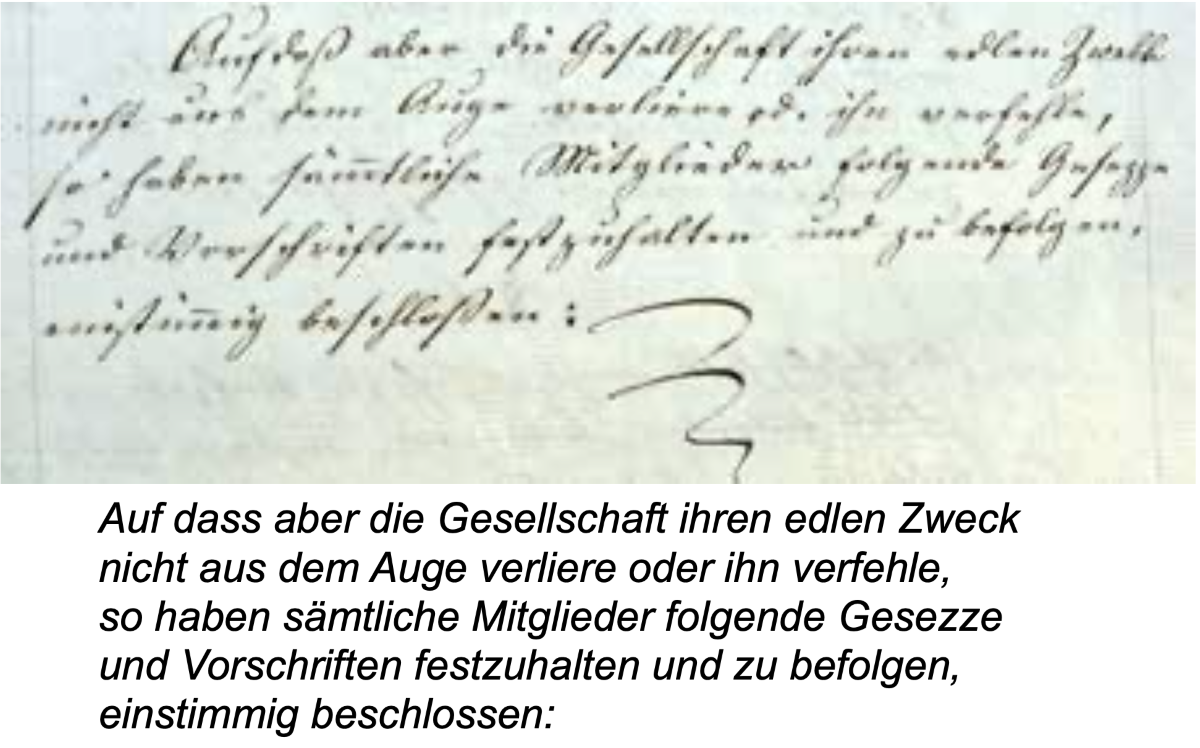 Auf daß aber die Gesellschaft ihren edlen Zweck
nicht aus dem Auge verliere od. ihn verfehle,
so haben sämmtliche Mitglieder folgende Gesezze
und Vorschriften festzuhalten und zu befolgen,
einstimmig beschloßen:
Auf dass aber die Gesellschaft ihren edlen Zweck
nicht aus dem Auge verliere oder ihn verfehle,
so haben sämtliche Mitglieder folgende Gesezze
und Vorschriften festzuhalten und zu befolgen,
einstimmig beschlossen: